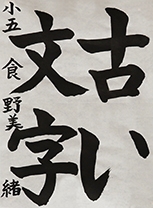 古い
文字
小五 食野美緒